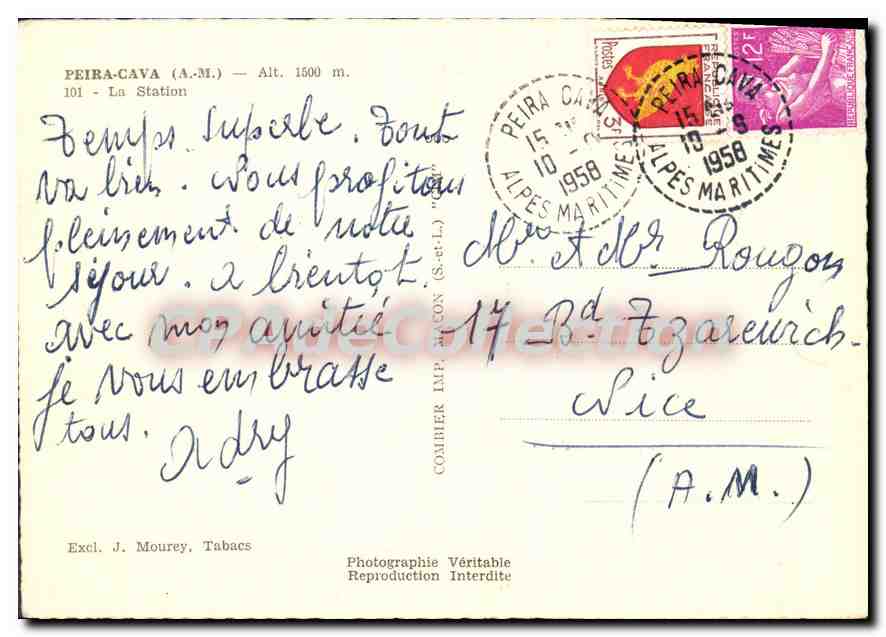 PEIRA-CAVA (A.-M.) — Alt. 1500 m.
101 - La Station
Temps superbe. Tout
va bien. Nous profitons
pleinement de notre
séjour. A bientôt.
avec mon amitié
je vous embrasse
tous.
Adry
Excl. J. Mourey, Tabacs
COMBIER IMP. MACON (S.-et-L.) "CIM"
Photographie Véritable
Reproduction Interdite
PEIRA CAVA
15 H
10 - 9
1958
ALPES MARITIMES
PEIRA CAVA
15 H
10 - 9
1958
ALPES MARITIMES
Postes
3F
REPUBLIQUE
FRANÇAISE
POSTES
12F
REPUBLIQUE FRANÇAISE
Mrs et Mr. Rougon
17 Bd. Tzarewich.
Nice
(A.M.)
CPAdeCollection